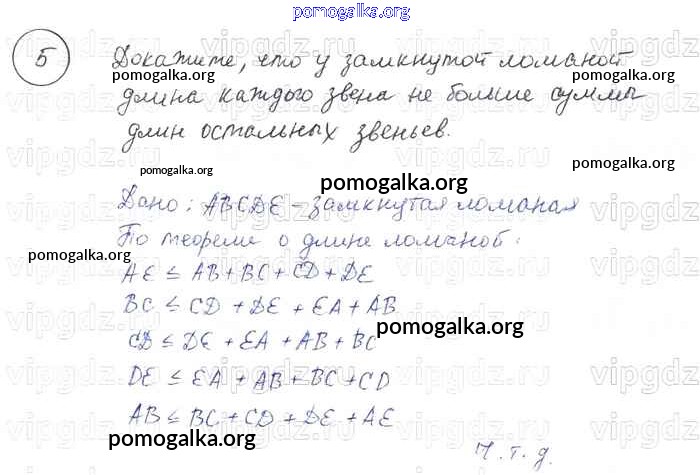 pomogalka.org
5 Докажите, что у замкнутой ломаной
pomogalka.org pomogalka.org
длина каждого звена не больше суммы
длин остальных звеньев.
pomogalka.org pomogalka.org
pomogalka.org
Дано: ABCDE – замкнутая ломаная
По теореме о длине ломаной:
pomogalka.org
AE ≤ AB + BC + CD + DE
BC ≤ CD + DE + EA + AB
pomogalka.org
CD ≤ DE + EA + AB + BC
DE ≤ EA + AB + BC + CD
AB ≤ BC + CD + DE + AE
pomogalka.org
ч.т.д.
pomogalka.org
vipgdz.ru